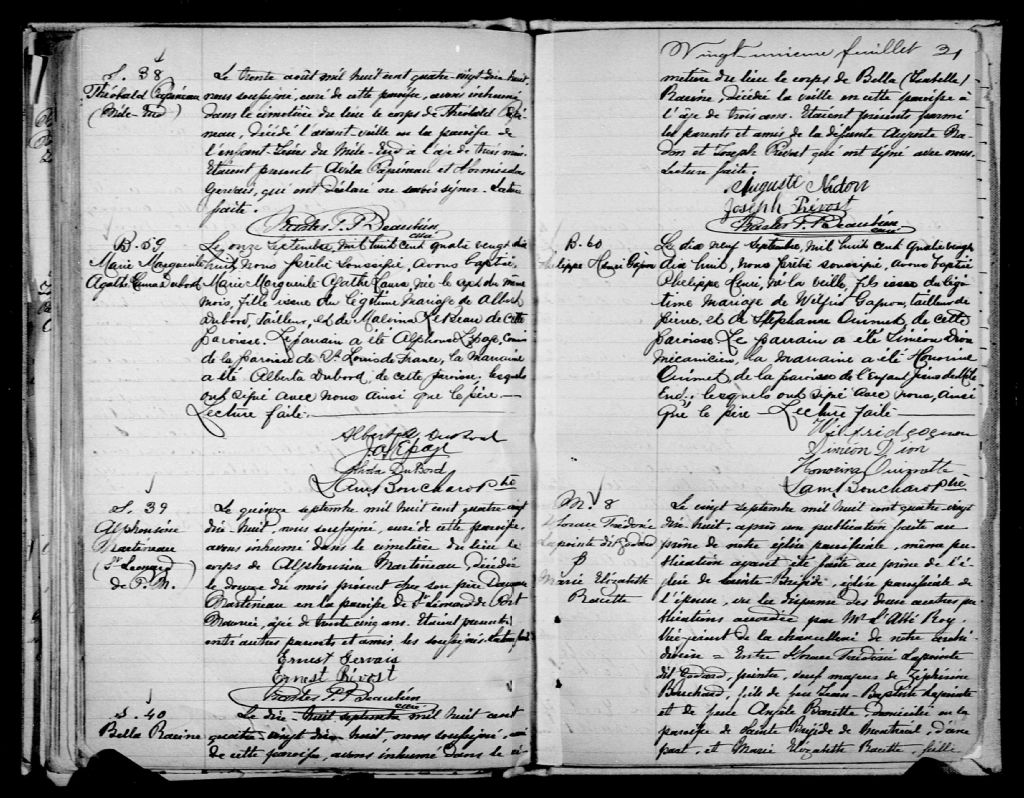 S. 38
Théobald Papineau
(Mile-End)
Le trente août mil huit cent quatre-vingt-dix-huit
nous soussigné, curé de cette paroisse, avons inhumé
dans le cimetière du lieu le corps de Théobald Papi-
neau, décédé l'avant-veille en la paroisse de
l'enfant-Jésus du Mile-End à l'âge de trois mois.
Etaient présents Avila Papineau et Hormisdas
Gervais, qui ont déclaré ne savoir signer. Lecture
faite.
Charles P. Beaubien
curé
B. 59
Marie Marguerite
Agathe Laura Dubord
Le onze septembre, mil huit cent quatre vingt dix
huit, nous prêtre soussigné, avons baptisé,
Marie Marguerite Agathe Laura, née le sept du même
mois, fille issue du légitime mariage de Albert
Dubord, tailleur, et de Malvina de cette
paroisse. Le parrain a été Alphonse Lepage,
de la paroisse de St Louis de France, la marraine
a été Alberta Dubord, de cette paroisse, lesquels
ont signé avec nous ainsi que le père
Lecture faite.
Albert Dubord
J A Lepage
DuBord
Bouchard Ptre
S. 39
Alphonsine
Martineau
(St Léonard
de P. M.)
Le quinze septembre mil huit cent quatre-vingt
dix-huit, nous soussigné, curé de cette paroisse,
avons inhumé dans le cimetière du lieu le
corps de Alphonsine Martineau, décédée
le douze du mois présent chez son père
Martineau en la paroisse de St Léonard de Port
Maurice, agée de trente cinq ans. Etaient présents
entre autres parents et amis les soussignés. Lecture faite
Ernest Gervais
Ernest Prévost
Charles P. Beaubien
curé
S. 40
Bella Racine
Le dix-huit septembre mil huit cent
quatre-vingt dix-huit, nous soussigné, curé
de cette paroisse, avons inhumé dans le ci-
Vingt-unième feuillet 31
metière du lieu le corps de Bella (Isabella)
Racine, décédée la veille en cette paroisse à
l'âge de trois ans. Etaient présents parmi
les parents et amis de la défunte Auguste Na-
don et Joseph Prévost qui ont signé avec nous.
Lecture faite.
Auguste Nadon
Joseph Prévost
Charles P. Beaubien
curé
B. 60
Philippe Henri Gagnon
Le dix neuf septembre, mil huit cent quatre vingt
dix huit, nous prêtre soussigné, avons baptisé
Philippe Henri, né la veille, fils issu du légi-
time mariage de Wilfrid Gagnon, tailleur de
pierre, et de Stéphanie Ouimet de cette
paroisse. Le parrain a été Siméon Dion
mécanicien, la marraine a été Honorine
Ouimet de la paroisse de l'Enfant Jésus du Mile
End; lesquels ont signé avec nous, ainsi
que le père Lecture faite
Wilfrid Gagnon
Siméon Dion
Honorina Ouimette
Bouchard Ptre
M. 8
Horace Trefflé
Lapointe dit Godard
&
Marie Elizabeth
Racette
Le vingt septembre mil huit cent quatre-vingt
dix-huit, après un publication faite au
prône de notre église paroissiale, même pu-
blication ayant été faite au prône de l'é-
glise de Sainte Brigide, église paroissiale de
l'épouse, vu la dispense des deux autres pu-
blications accordée par Mr l'Abbé Roy
Vice-gérent de la chancellerie de notre
diocèse = Entre Horace Lapointe
dit Godard, peintre, veuf majeur de Zéphirine
Bouchard, fils de feu Jean-Baptiste Lapointe
et de feue Angèle Racette, domicilié en la
paroisse de Sainte Brigide de Montréal, d'une
part, et Marie Elizabeth Racette, fille